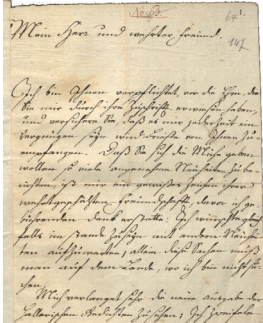 No 63.
64
147
Mein Herr und wehrter freund.
Ich bin Ihnen verpflichtet, vor die Ehre, die
Sie mir durch ihre Zuschrifft erwiesen haben,
und versichere Sie, daß es mir jederzeit ein
Vergnügen seyn wird, Briefe von Ihnen zu
empfangen. Daß Sie sich die Mühe geben
wollen so viele angenehme Neuheiten zu be-
richten, ist mir ein Zeichen ihrer
freundschafft, davor ich ge-
bührenden danck erstatte. Ich
falls im stande mit andern Neuhei-
ten aufzuwarten; allein daß Sachen muß
man auf dem Lande, wo ich bin
chen.
Mich verlanget sehr die neue ausgabe der
Hallerischen Gedichten zu sehen; Ich zweifele